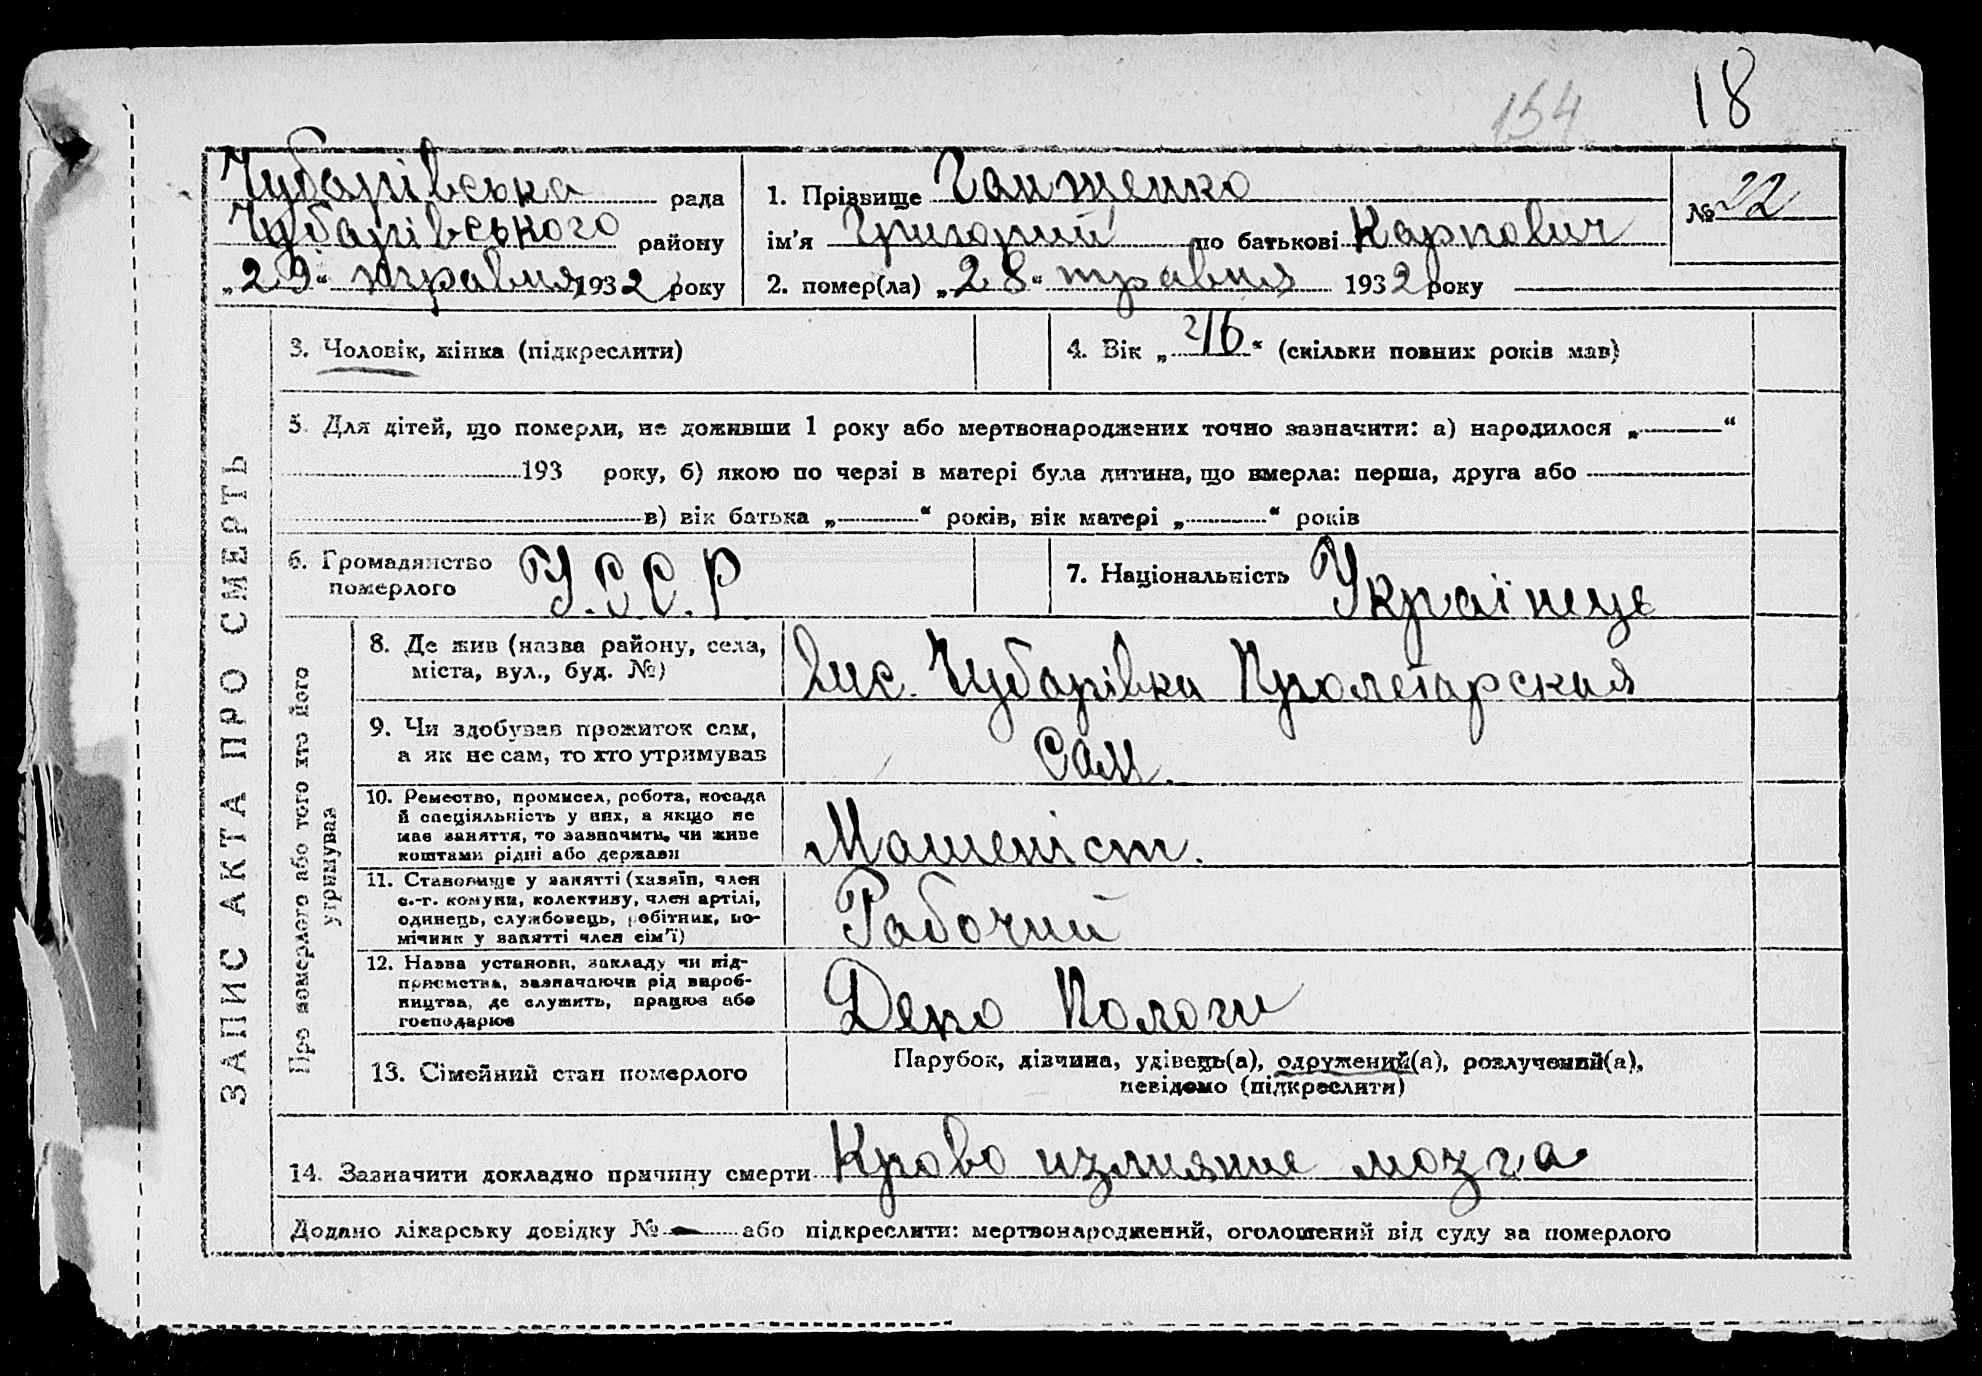 154 18
Чубарівська рада
Чубарівського району
„29“ травня 1932 року
1. Прізвище Ганженко
ім'я Григорий по батькові Карпович
2. помер(ла) „28“ травня 1932 року
№ 22
ЗАПИС АКТА ПРО СМЕРТЬ
3. Чоловік, жінка (підкреслити)
4. Вік „46“ (скільки повних років мав)
5. Для дітей, що померли, не доживши 1 року або мертвонароджених точно зазначити: а) народилося „ “
193 року, б) якою по черзі в матері була дитина, що вмерла: перша, друга або
в) вік батька „ “ років, вік матері „ “ років
6. Громадянство
померлого У.С.С.Р
7. Національність Українець
Про померлого або того хто його
утримував
8. Де жив (назва району, села,
міста, вул., буд. №)
Чубарівка Пролетарская
9. Чи здобував прожиток сам,
а як не сам, то хто утримував
Сам.
10. Ремество, промисел, робота, посада
й спеціяльність у них, а якщо не
має заняття, то зазначити, чи живе
коштами рідні або держави
Машеніст.
11. Становище у занятті (хазяїн, член
с.-г. комуни, колективу, член артілі,
одинець, службовець, робітник, по-
мічник у занятті член сім'ї)
Рабочий
12. Назва установи, закладу чи під-
приємства, зазначаючи рід вироб-
ництва, де служить, працює або
господарює
Депо Пологи
13. Сімейний стан померлого
Парубок, дівчина, удівець(а), одружений(а), розлучений(а),
невідомо (підкреслити)
14. Зазначити докладно причину смерти Крово излияние мозга
Додано лікарську довідку № — або підкреслити: мертвонароджений, оголошений від суду за померлого